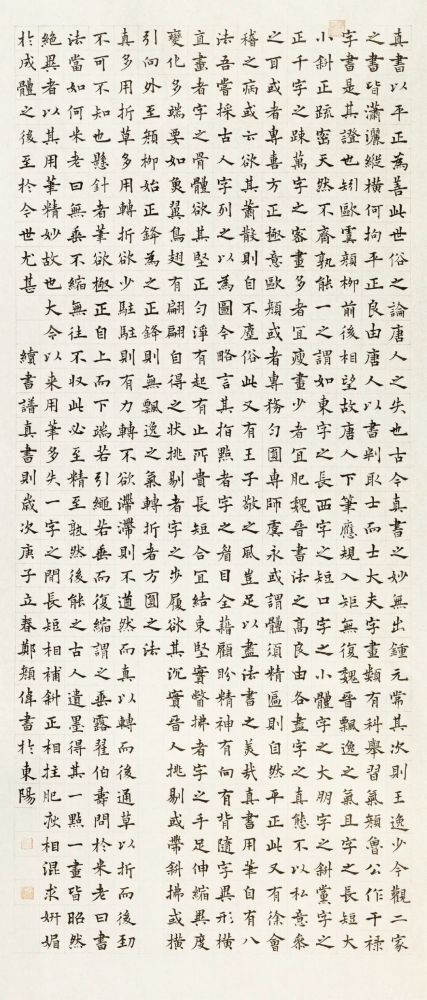 真書以平正為善此世俗之論唐人之失也古今真書之妙無出鍾元常其次則王逸少今觀二家
之書皆瀟灑縱橫何拘平正良由唐人以書判取士而士大夫字畫類有科舉習氣顏魯公作干祿
字書是其證也矧歐虞顏柳前後相望故唐人下筆應規入矩無復魏晉飄逸之氣且字之長短大
小斜正疏密天然不齊孰能一之謂如東字之長西字之短口字之小體字之大朋字之斜黨字之
正千字之疎萬字之密畫多者宜瘦畫少者宜肥魏晉書法之高良由各盡字之真態不以私意參
之耳或者專喜方正極意歐顏或者專務勻圓專師虞永或謂體須精區則自然平正此又有徐會
稽之病或云欲其蕭散則自不塵俗此又有王子敬之風豈足以盡法書之美哉真書用筆自有八
法吾嘗採古人字列之以為圖今略言其指點者字之眉目全藉顧盼精神有向有背隨字異形橫
直畫者字之骨體欲其堅正勻淨有起有止所貴長短合宜結束堅實撆拂者字之手足伸縮異度
變化多端要如魚翼鳥翅有翩翩自得之狀挑剔者字之步履欲其沉實晉人挑剔或帶斜拂或橫
引向外至顏柳始正鋒為之正鋒則無飄逸之氣轉折者方圓之法
真多用折草多用轉折欲少駐駐則有力轉不欲滯滯則不遒然而真以轉而後通草以折而後勁
不可不知也懸針者筆欲極正自上而下端若引繩若垂而復縮謂之垂露翟伯壽問於米老曰書
法當如何米老曰無垂不縮無往不收此必至精至熟然後能之古人遺墨得其一點一畫皆昭然
絕異者以其用筆精妙故也大令以來用筆多失一字之間長短相補斜正相拄肥瘦相混求妍媚
於成體之後至於今世尤甚 續書譜真書則歲次庚子立春鄭偉書於東陽